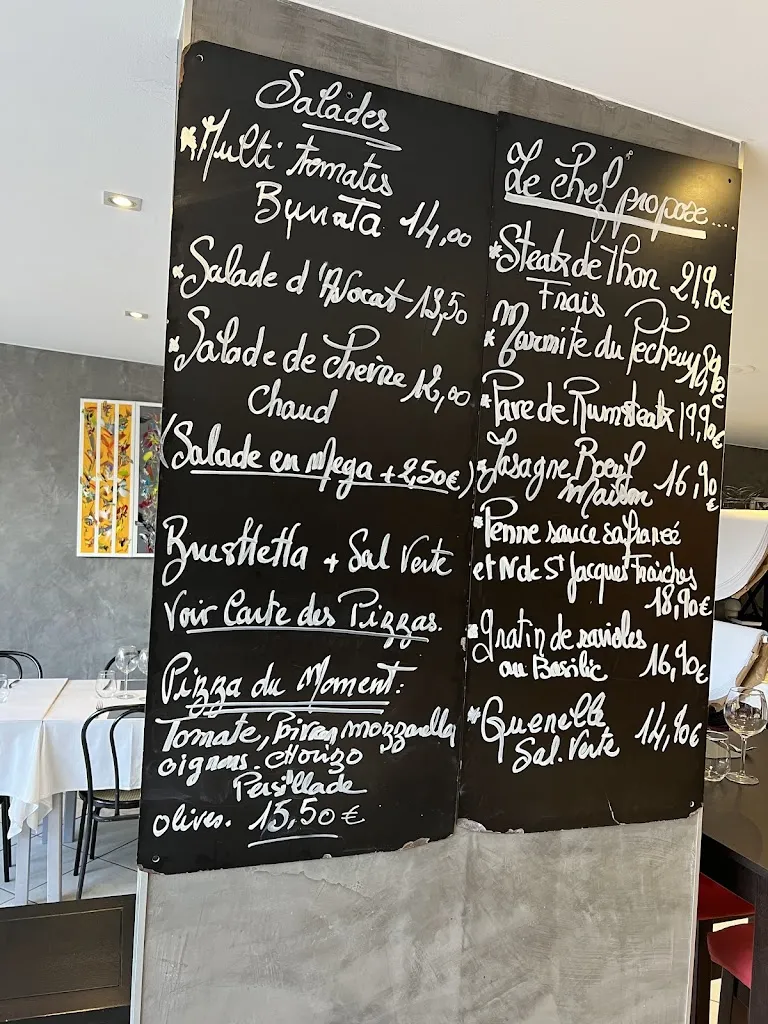 Salades
*Multi tomates
Burrata 14,00
*Salade d'Avocat 13,50
*Salade de chèvre 12,00
chaud
(Salade en Mega + 2,50€)
Brusttetta + Sal Verte
Voir Carte des Pizzas.
Pizza du Moment:
Tomate, mozzarella
oignons. chorizo
Persillade
olives. 15,50 €
Le chef propose.....
*Steak de Thon 21,90€
Frais
*Marmite du Pêcheur
*Pavé de Rumsteak 19,90€
*Lasagne Boeuf 16,90
Maison
*Penne sauce safranée
et N de St Jacques Fraiches
18,90€
*gratin de ravioles
au Basilic 16,90€
*Quenelle 14,90€
Sal. Verte